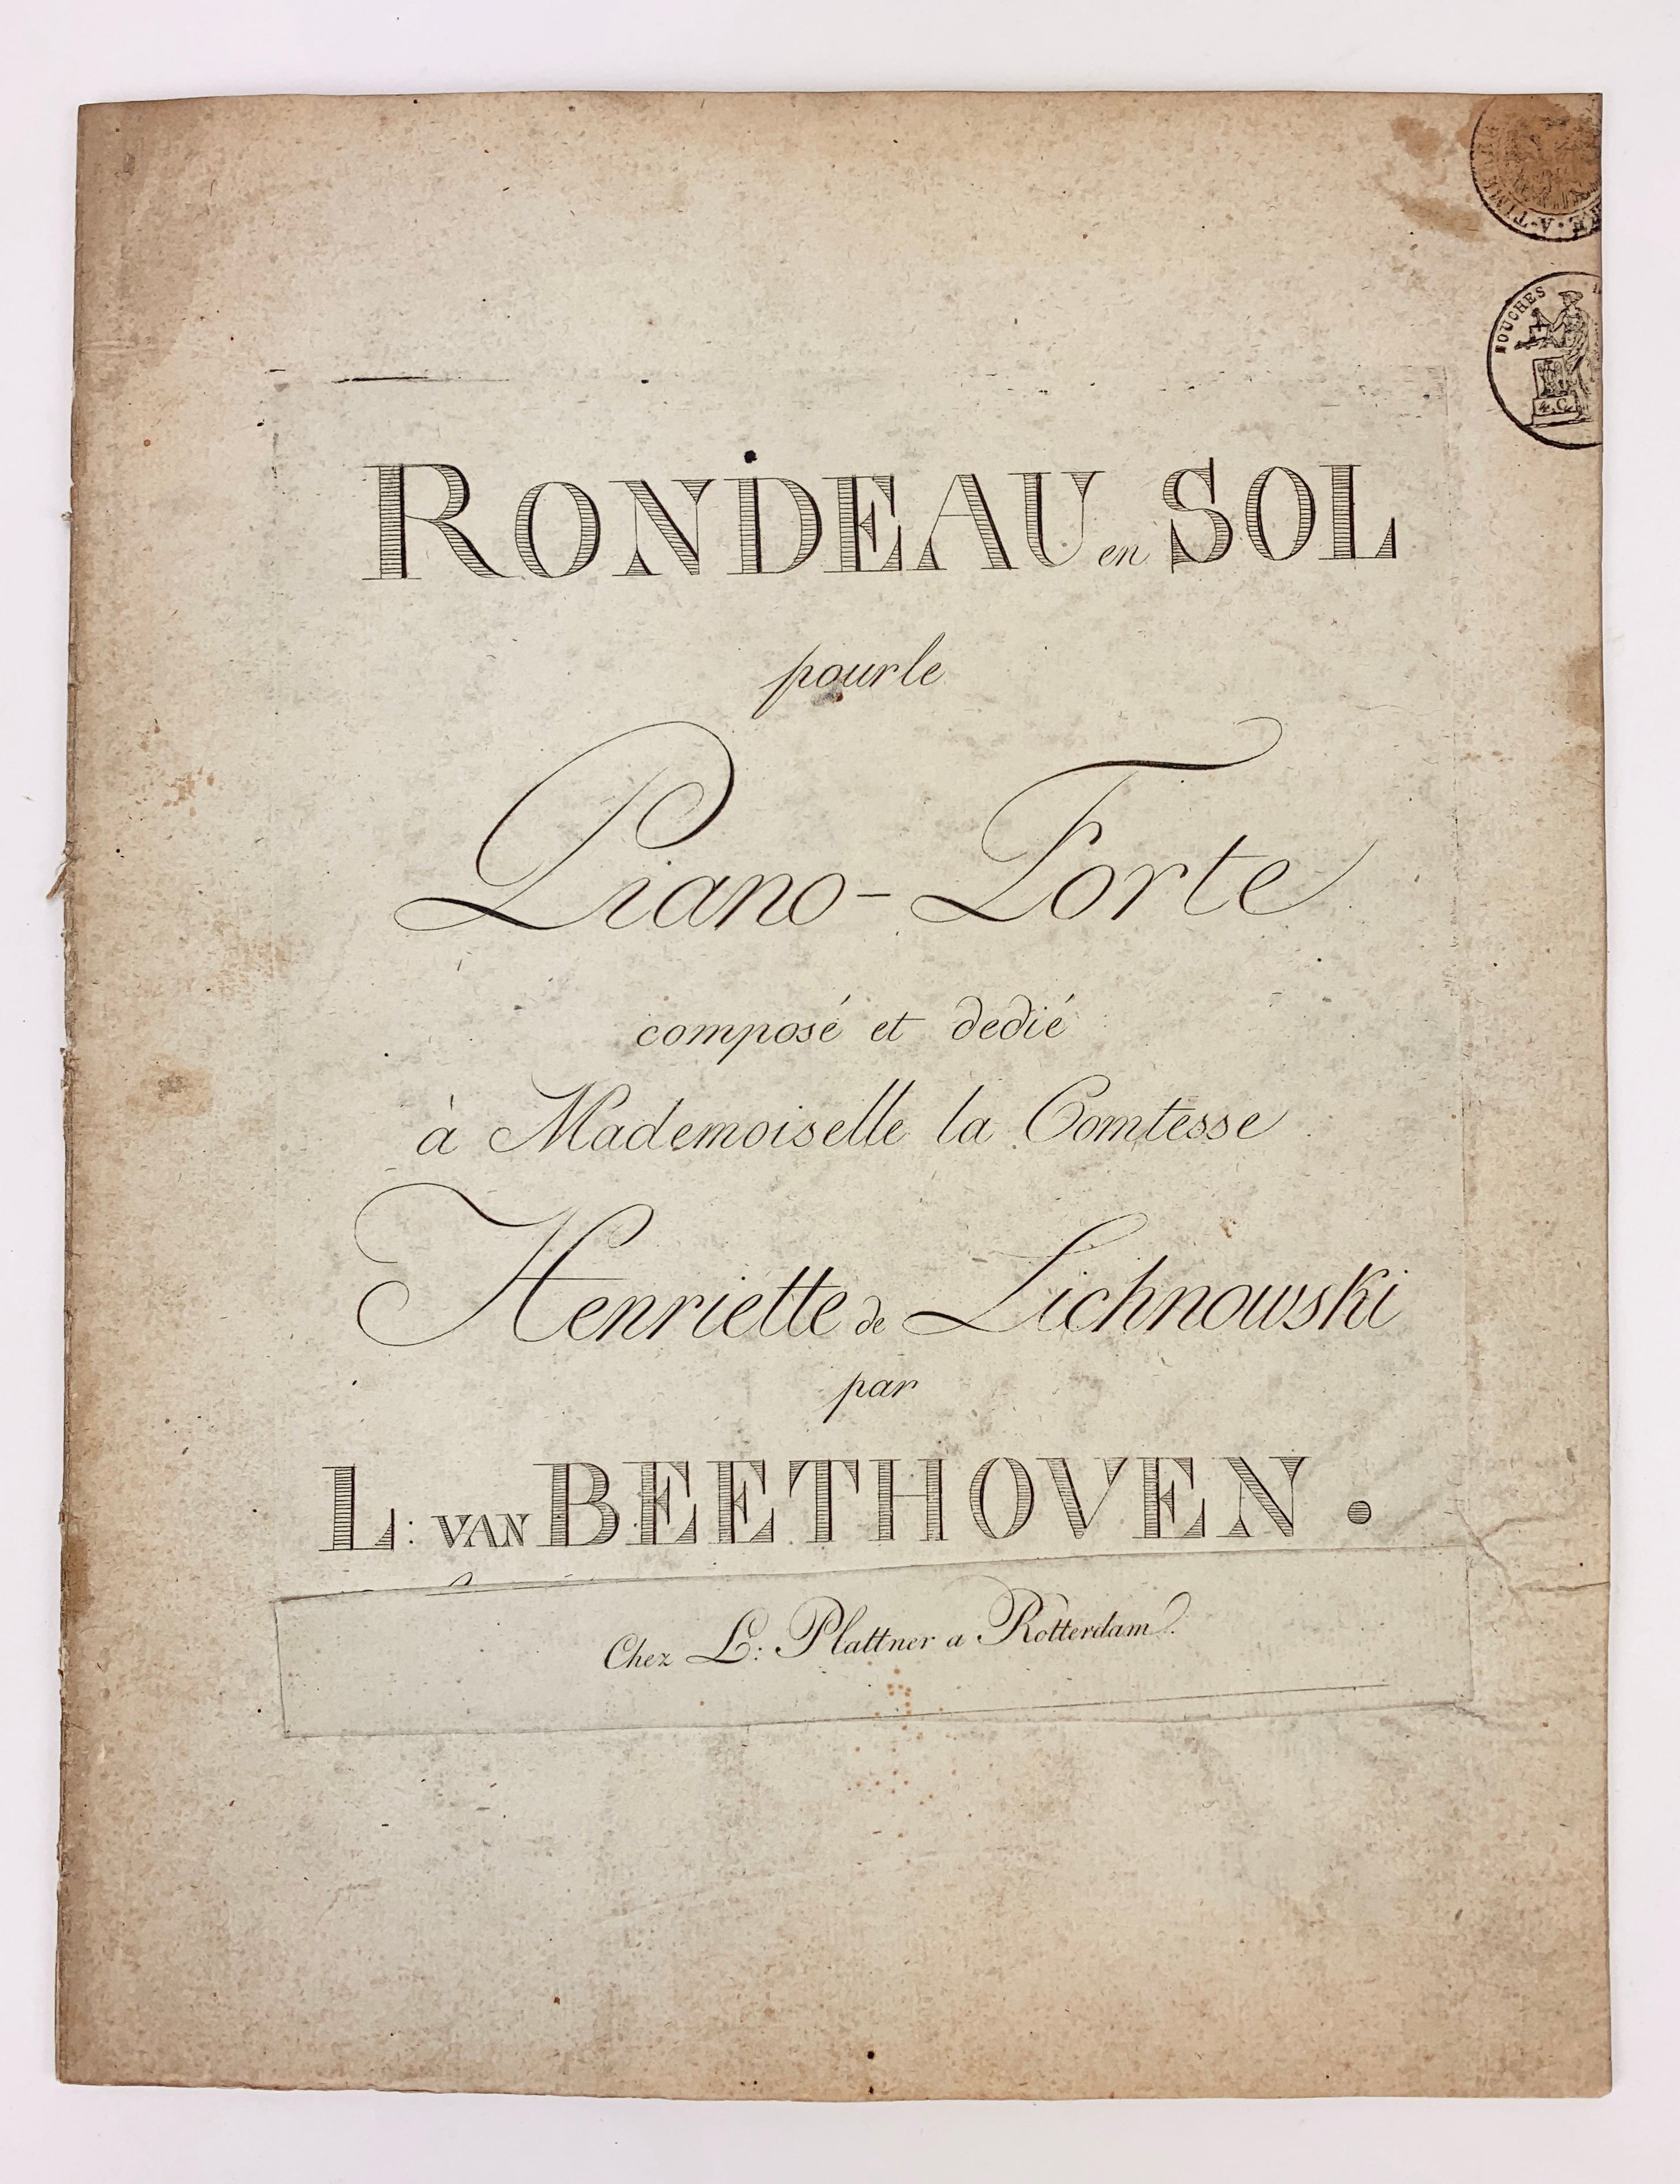 BOUCHES
4.C.
RONDEAU en SOL
pour le
Piano-Forte
composé et dedié
à Mademoiselle la Comtesse
Henriette de Lichnowski
par
L: VAN BEETHOVEN.
Chez L: Plattner a Rotterdam.